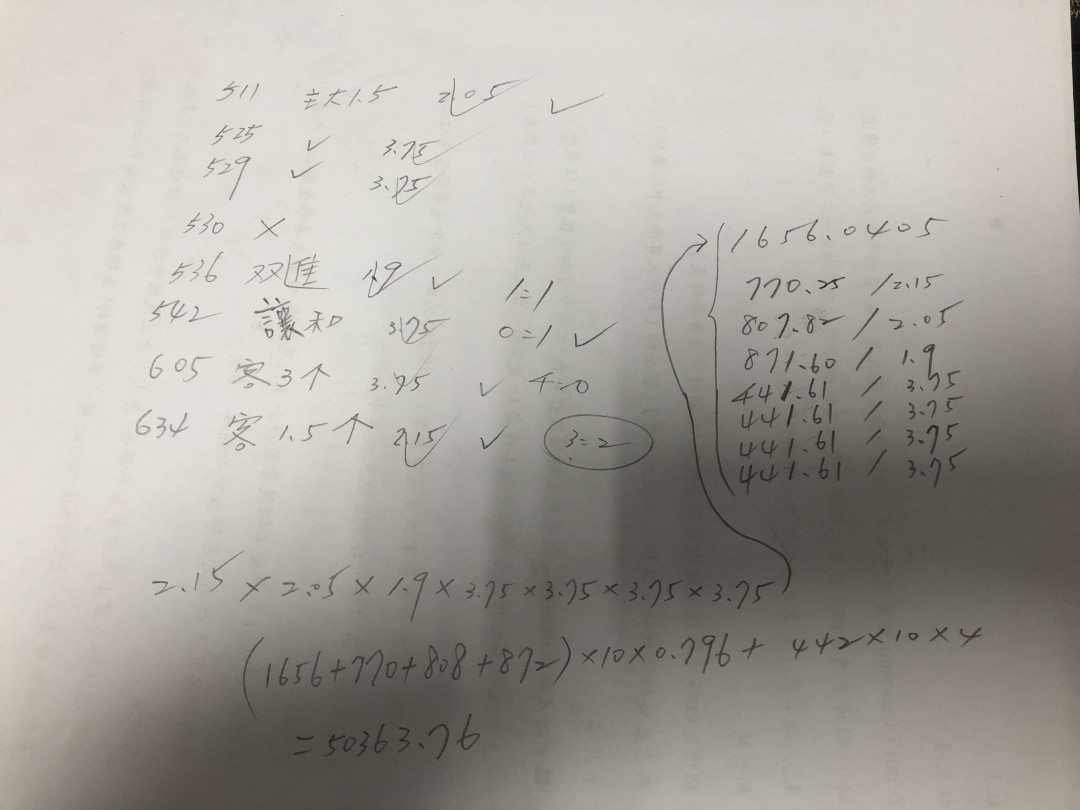 511 主大1.5 2.05 ✓
525 ✓ 3.75
529 ✓ 3.75
530 ×
536 双進 1.9 ✓ 1=1
542 讓和 3.75 0=1 ✓
605 客3个 3.75 ✓ 4=0
634 客1.5个 2.15 ✓ 3=2
1656.0405
770.25 / 2.15
807.82 / 2.05
871.60 / 1.9
441.61 / 3.75
441.61 / 3.75
441.61 / 3.75
441.61 / 3.75
2.15×2.05×1.9×3.75×3.75×3.75×3.75
(1656+770+808+872)×10×0.796+ 442×10×4
=50363.76